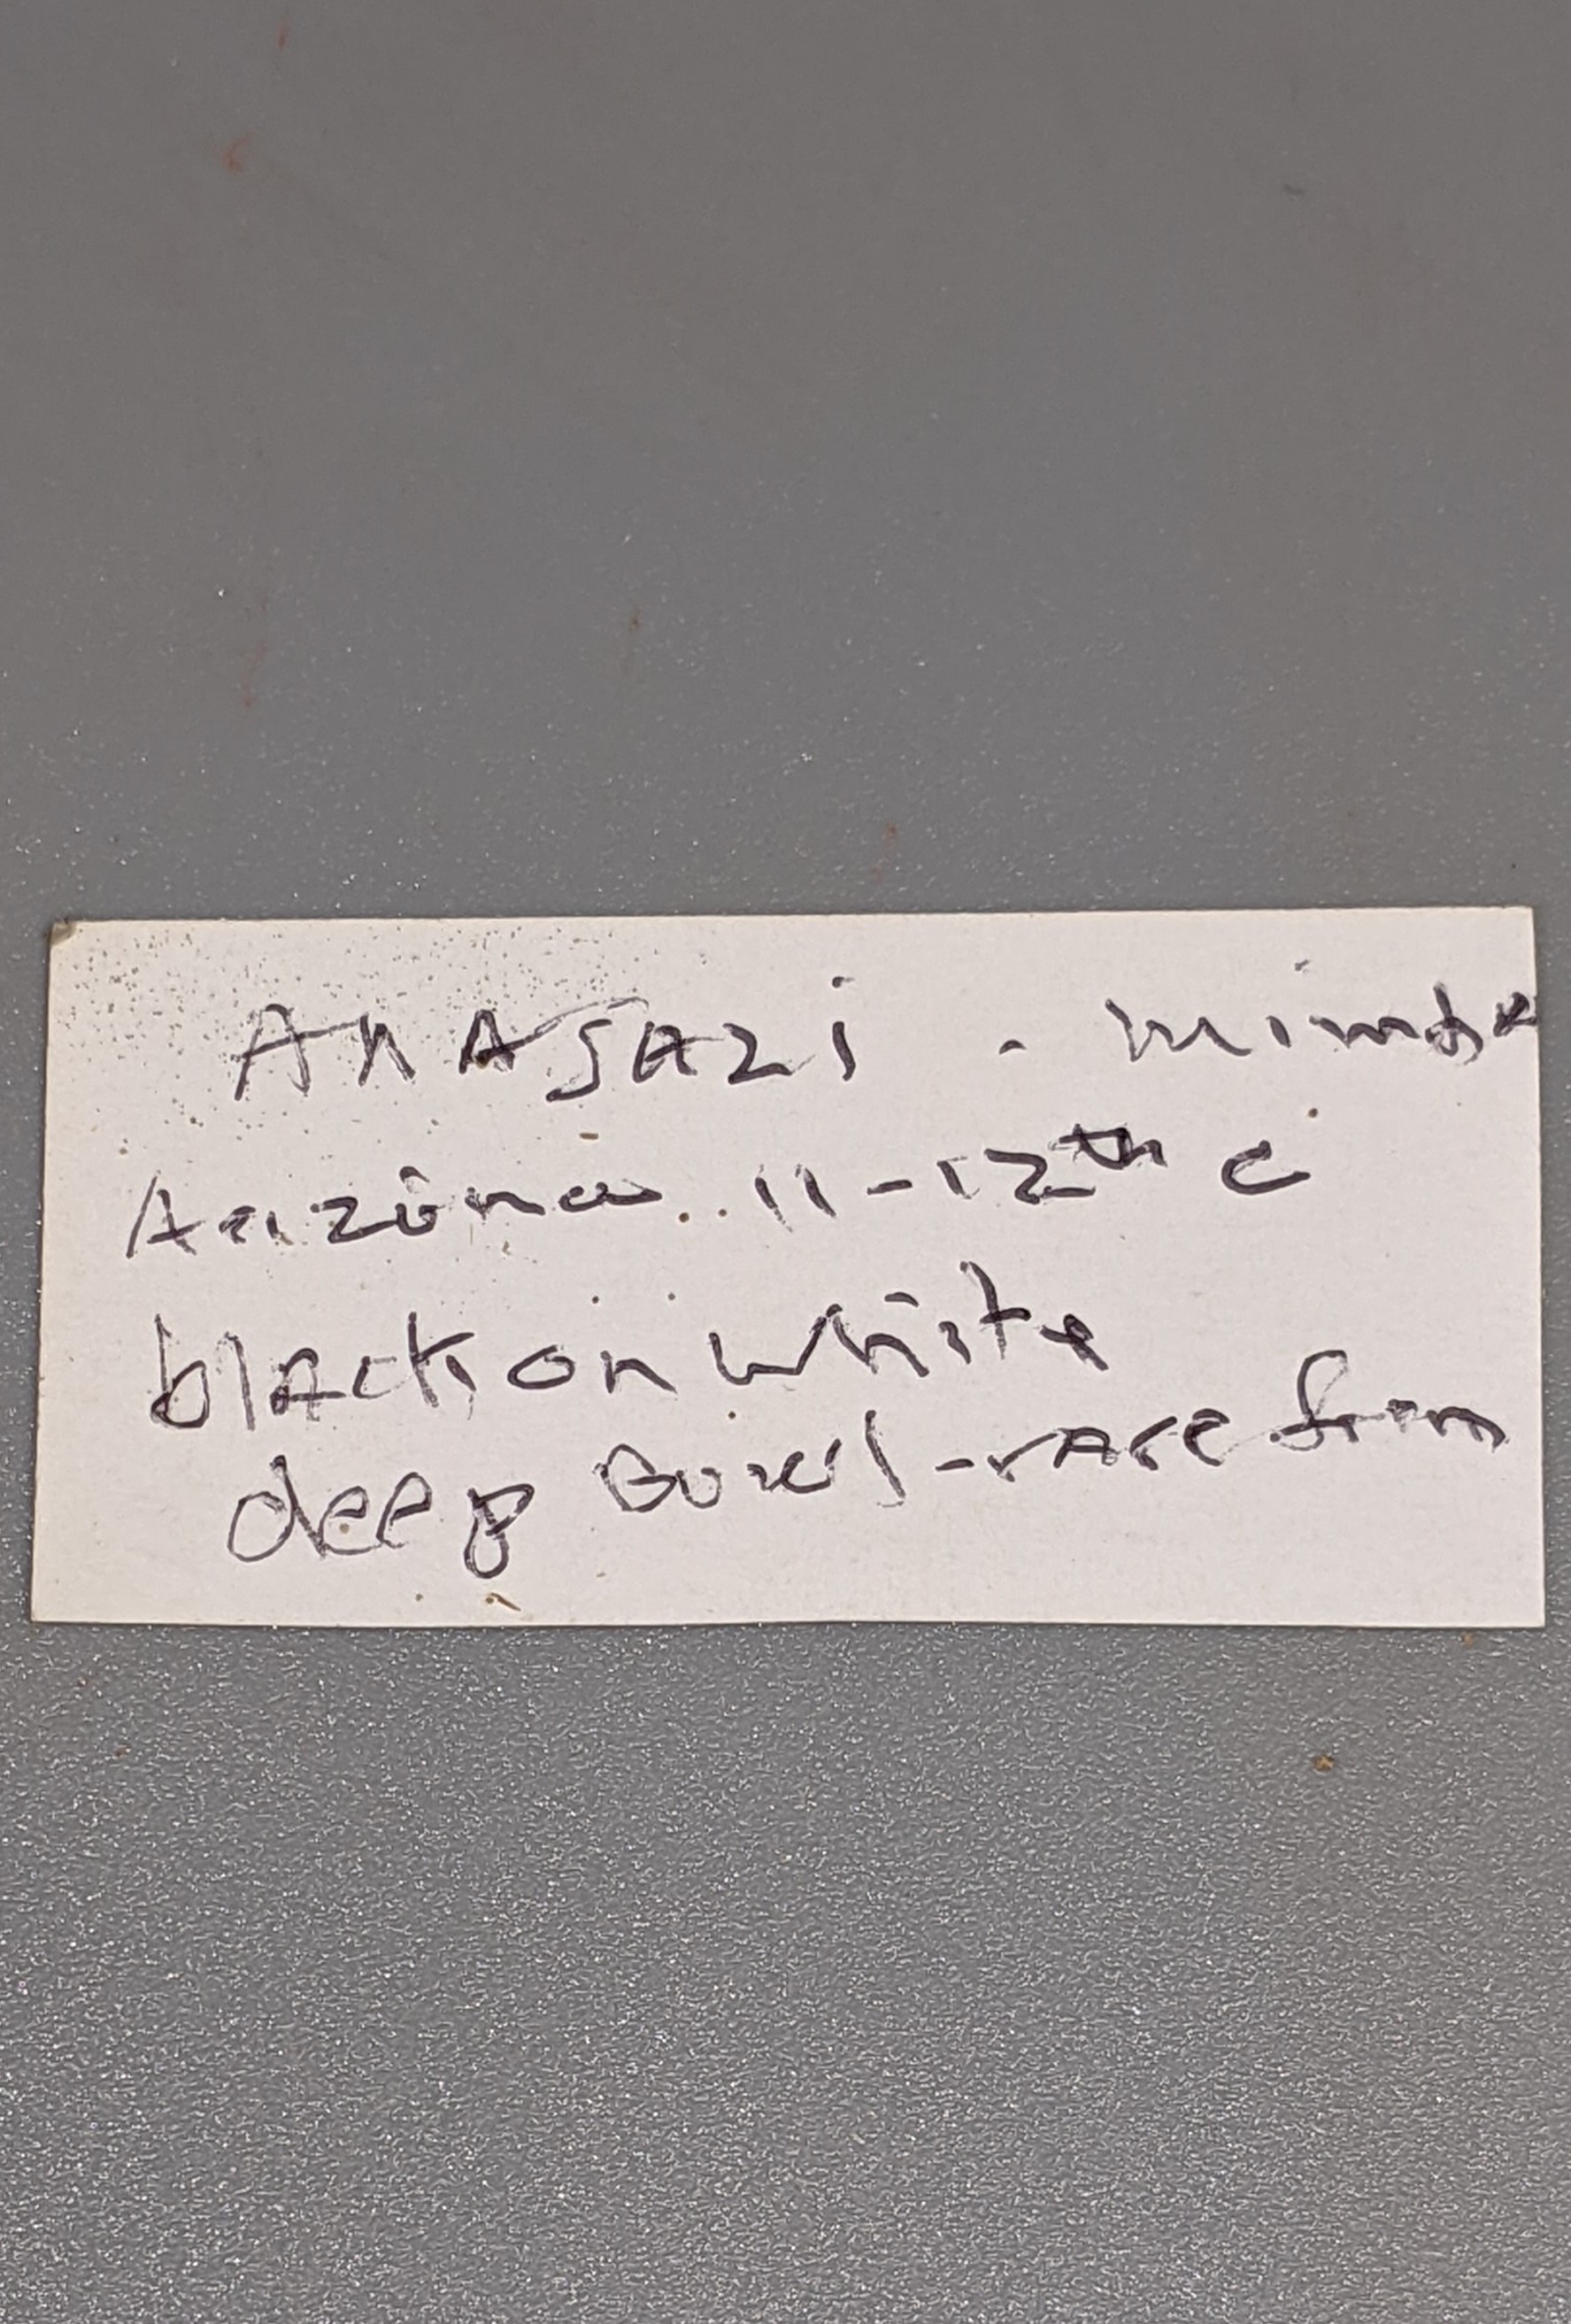 ANASAZi - mimbre
Arizona .. 11-12th c
black on white
deep Bowl - rare form